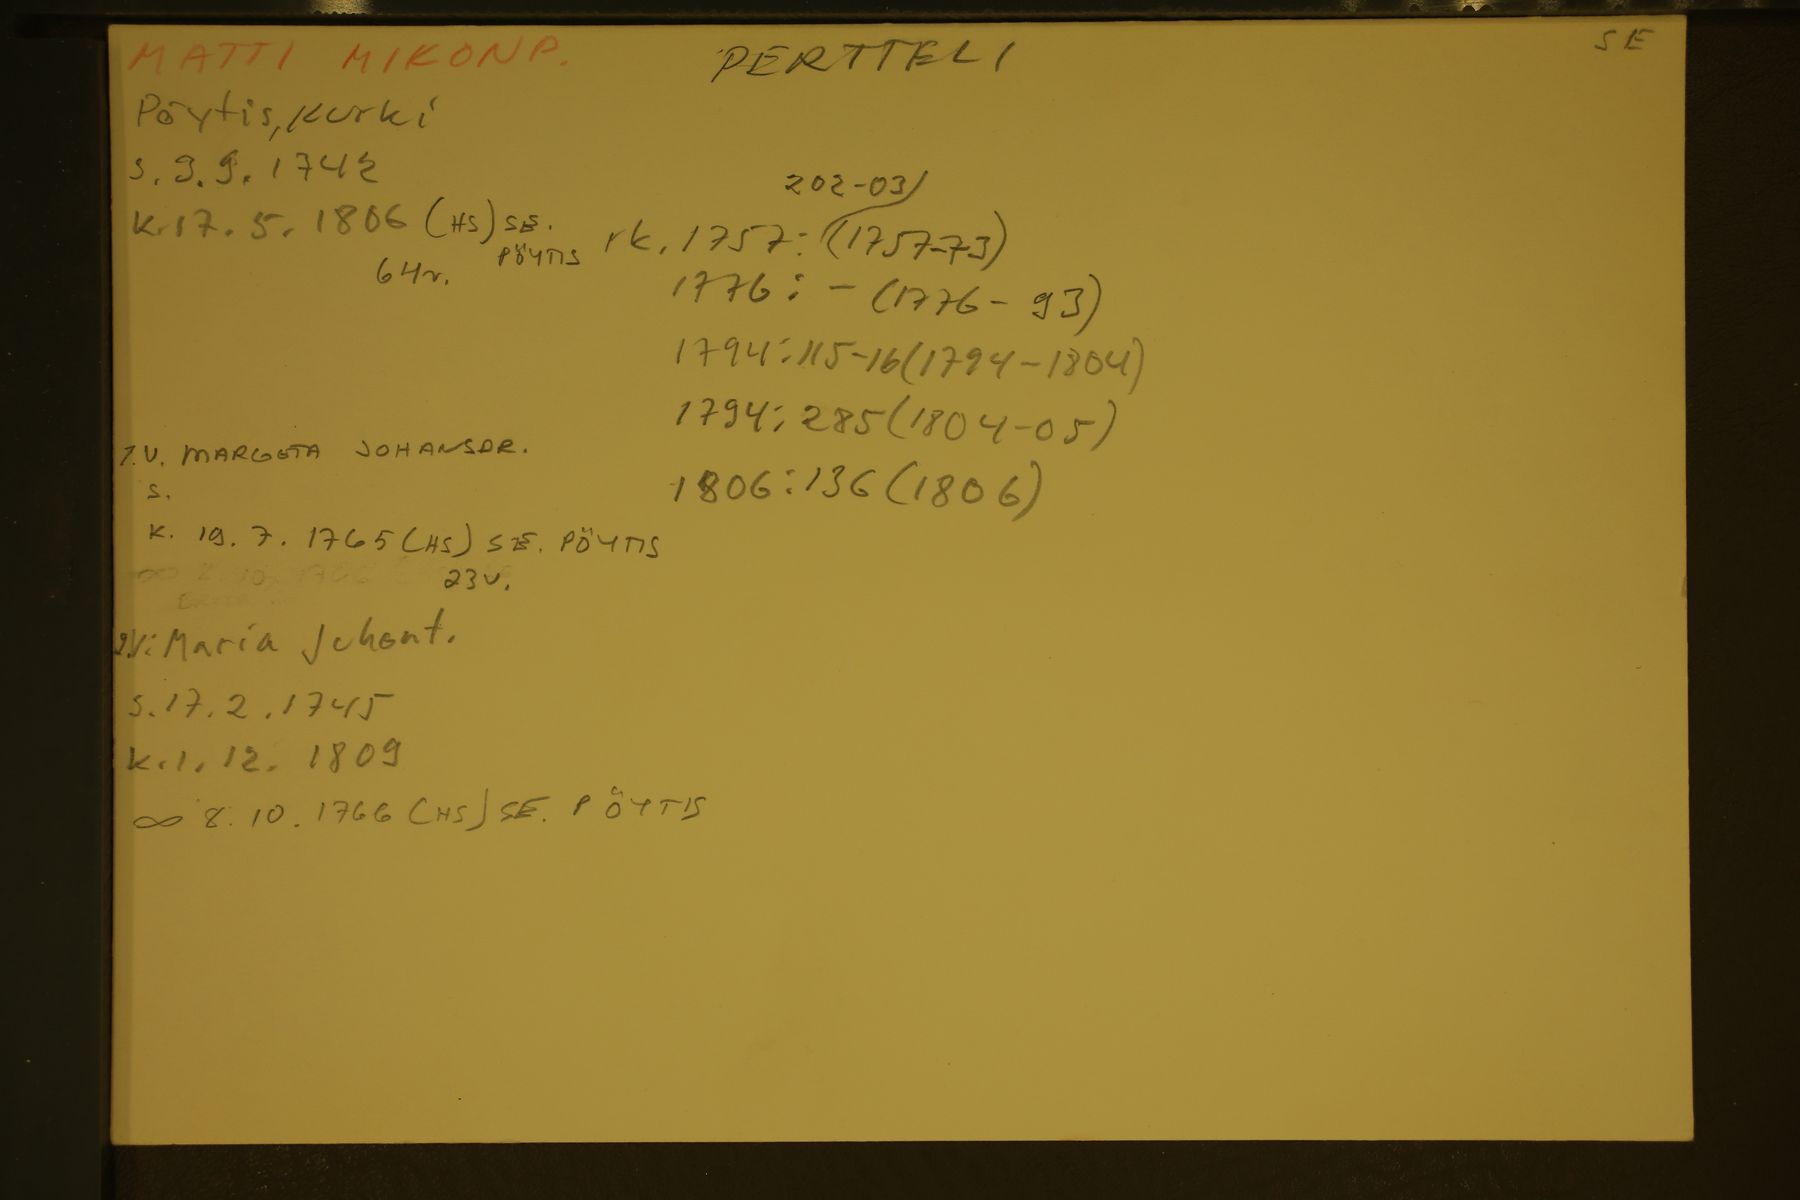 MATTI MIKONP. PERTTELI SE
Pöytis, Kurki
s. 9.9.1742
202-03/
k. 17.5.1806 (HS) SE. PÖYTIS rk. 1757: (1757-73)
64v.
1776: - (1776-93)
1794: 115-16 (1794-1804)
1794: 285 (1804-05)
1.V. MARGETA JOHANSDR.
s.
1806: 136 (1806)
k. 19.7.1765 (HS) SE. PÖYTIS
23v.
2.V: Maria Juhont.
s. 17.2.1745
k. 1.12.1809
∞ 8.10.1766 (HS) SE. PÖYTIS